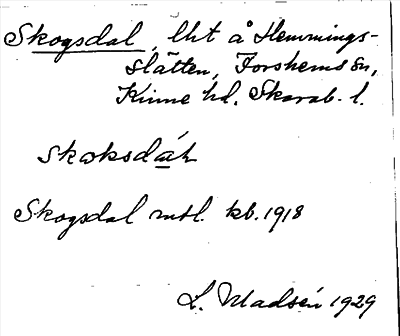 Skogsdal, lht å Hemmings-
slätten, Forshems sn,
Kinne hd. Skarab. l.
skoksdáh
Skogsdal mtl. kb. 1918
L. Madsén 1929